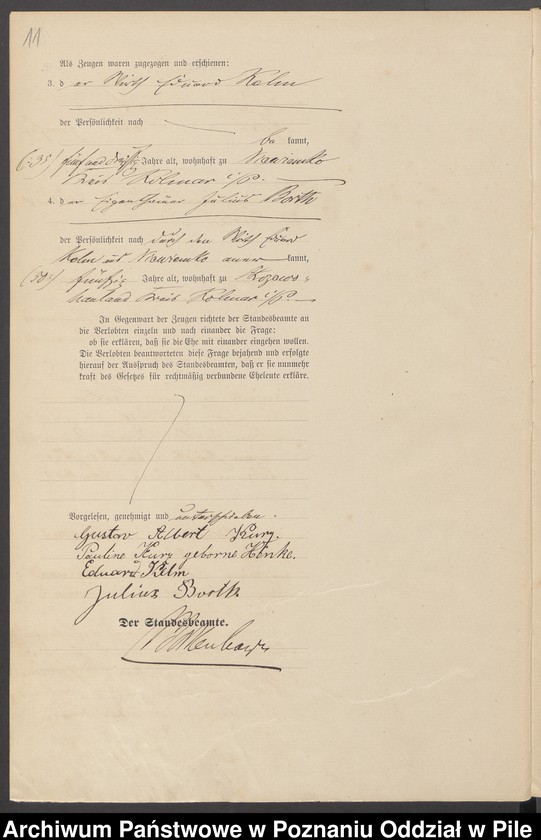 11
Als Zeugen waren zugezogen und erschienen:
3. der Wirth Eduard Kelm
der Persönlichkeit nach
be kannt,
(:35:) fünfunddreißig Jahre alt, wohnhaft zu
Kreis Kolmar i/P.
4. der Eigenthümer Julius Borth
der Persönlichkeit nach durch den Wirth Eduard
Kelm aus aner kannt,
(50:) fünfzig Jahre alt, wohnhaft zu
hauland Kreis Kolmar i/P.
In Gegenwart der Zeugen richtete der Standesbeamte an
die Verlobten einzeln und nach einander die Frage:
ob sie erklären, daß sie die Ehe mit einander eingehen wollen.
Die Verlobten beantworteten diese Frage bejahend und erfolgte
hierauf der Ausspruch des Standesbeamten, daß er sie nunmehr
kraft des Gesetzes für rechtmäßig verbundene Eheleute erkläre.
Vorgelesen, genehmigt und unterschrieben.
Gustav Albert Kurz.
Pauline Kurz geborne Hinke.
Eduard Kelm
Julius Borth
Der Standesbeamte.
Archiwum Państwowe w Poznaniu Oddział w Pile